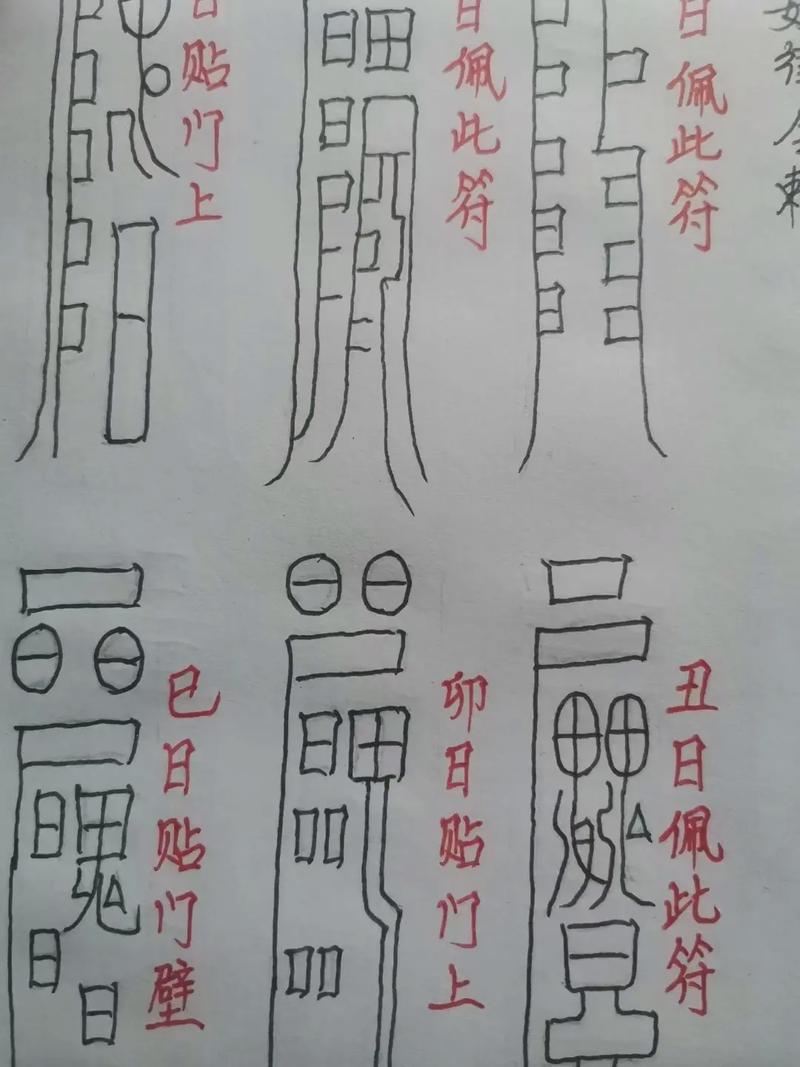 如律令敕
日佩此符
日佩此符
日贴门上
丑日佩此符
卯日贴门上
巳日贴门壁